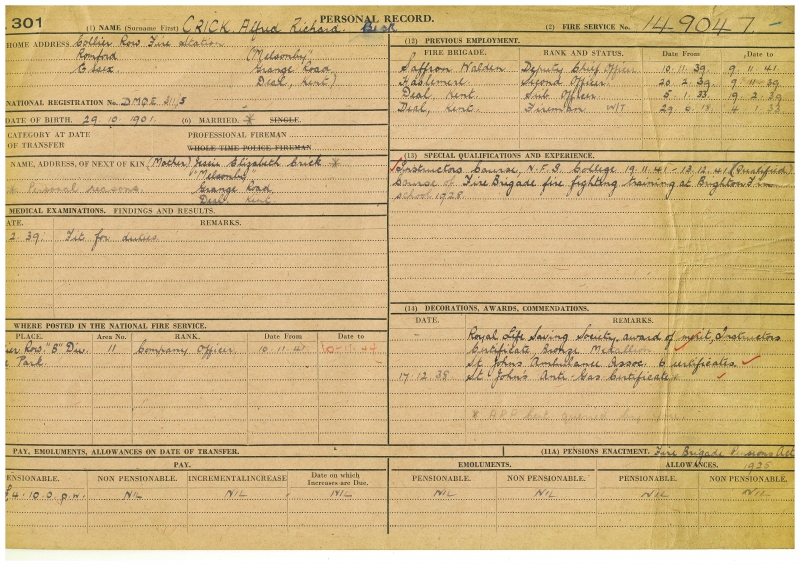 301
PERSONAL RECORD.
(1) NAME (Surname First) CRICK. Alfred Richard.
(2) FIRE SERVICE No. 149047.-
HOME ADDRESS Collier Row Fire Station
Romford ("Melsonby"
Essex. Grange Road
Deal, Kent)
NATIONAL REGISTRATION No.
DATE OF BIRTH. 29. 10. 1901. (6) MARRIED. * SINGLE.
CATEGORY AT DATE OF TRANSFER
PROFESSIONAL FIREMAN
WHOLE TIME POLICE FIREMAN
NAME, ADDRESS, OF NEXT OF KIN (Mother) Jessie Elizabeth Crick *
"Melsonby"
* Personal reasons. Grange Road
Deal Kent
MEDICAL EXAMINATIONS. FINDINGS AND RESULTS.
ATE. REMARKS.
2. 39. Fit for duties
WHERE POSTED IN THE NATIONAL FIRE SERVICE.
PLACE. Area No. RANK. Date From Date to
ier Row "B" Div. 11 Company Officer 10. 11. 41 10-11-44
Park.
(12) PREVIOUS EMPLOYMENT.
FIRE BRIGADE. RANK AND STATUS. Date From Date to
Saffron Walden Deputy Chief Officer 10. 11. 39. 9. 11. 41.
Second Officer 20. 2. 39. 9. 11. 39.
Deal, Kent. Sub Officer 5. 1. 33. 19. 2. 39
Deal, Kent. Fireman W/T 29. 9. 18. 4. 1. 33
(13) SPECIAL QUALIFICATIONS AND EXPERIENCE.
Instructors Course, N.F.S. College 19.11.41 - 13.12.41 (Qualified)
Course of Fire Brigade fire fighting training at Brighton
School 1928.
(14) DECORATIONS, AWARDS, COMMENDATIONS.
DATE. REMARKS.
Royal Life Saving Society, award of merit, Instructors
Certificate Bronze Medallion
St. John's Ambulance Assoc. 6 certificates.
17. 12. 38 St. John's Anti-Gas Certificate
PAY, EMOLUMENTS, ALLOWANCES ON DATE OF TRANSFER.
(11A) PENSIONS ENACTMENT. Fire Brigade Pensions Act
1925
PAY. EMOLUMENTS. ALLOWANCES.
ENSIONABLE. NON PENSIONABLE. INCREMENTAL INCREASE Date on which Increases are Due. PENSIONABLE. NON PENSIONABLE. PENSIONABLE. NON PENSIONABLE.
£4. 10. 0. p.w. NIL NIL NIL NIL NIL NIL NIL